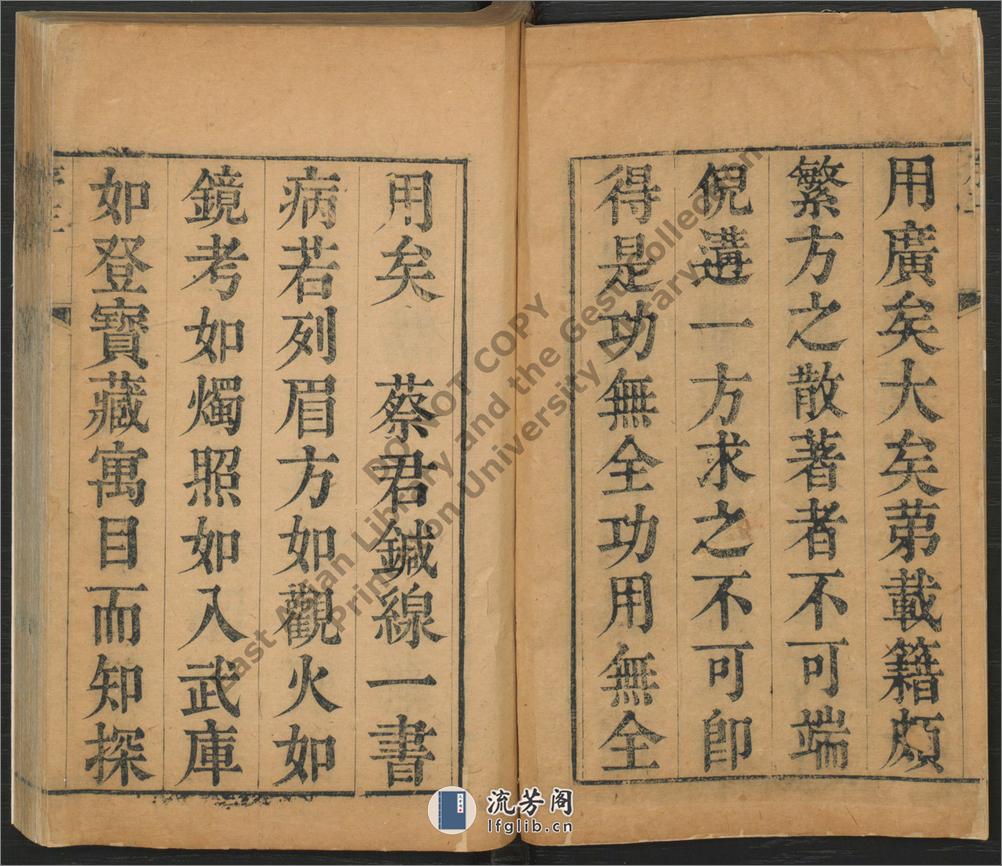 用廣矣大矣苐載籍頗
繁方之散著者不可端
倪遘一方求之不可卽
得是功無全功用無全
用矣　蔡君鍼線一書
病若列眉方如觀火如
鏡考如燭照如入武庫
如登寶藏寓目而知探
DO NOT COPY
East Asian Library and the Gest Collection
Princeton University Library
流芳阁
lfglib.cn